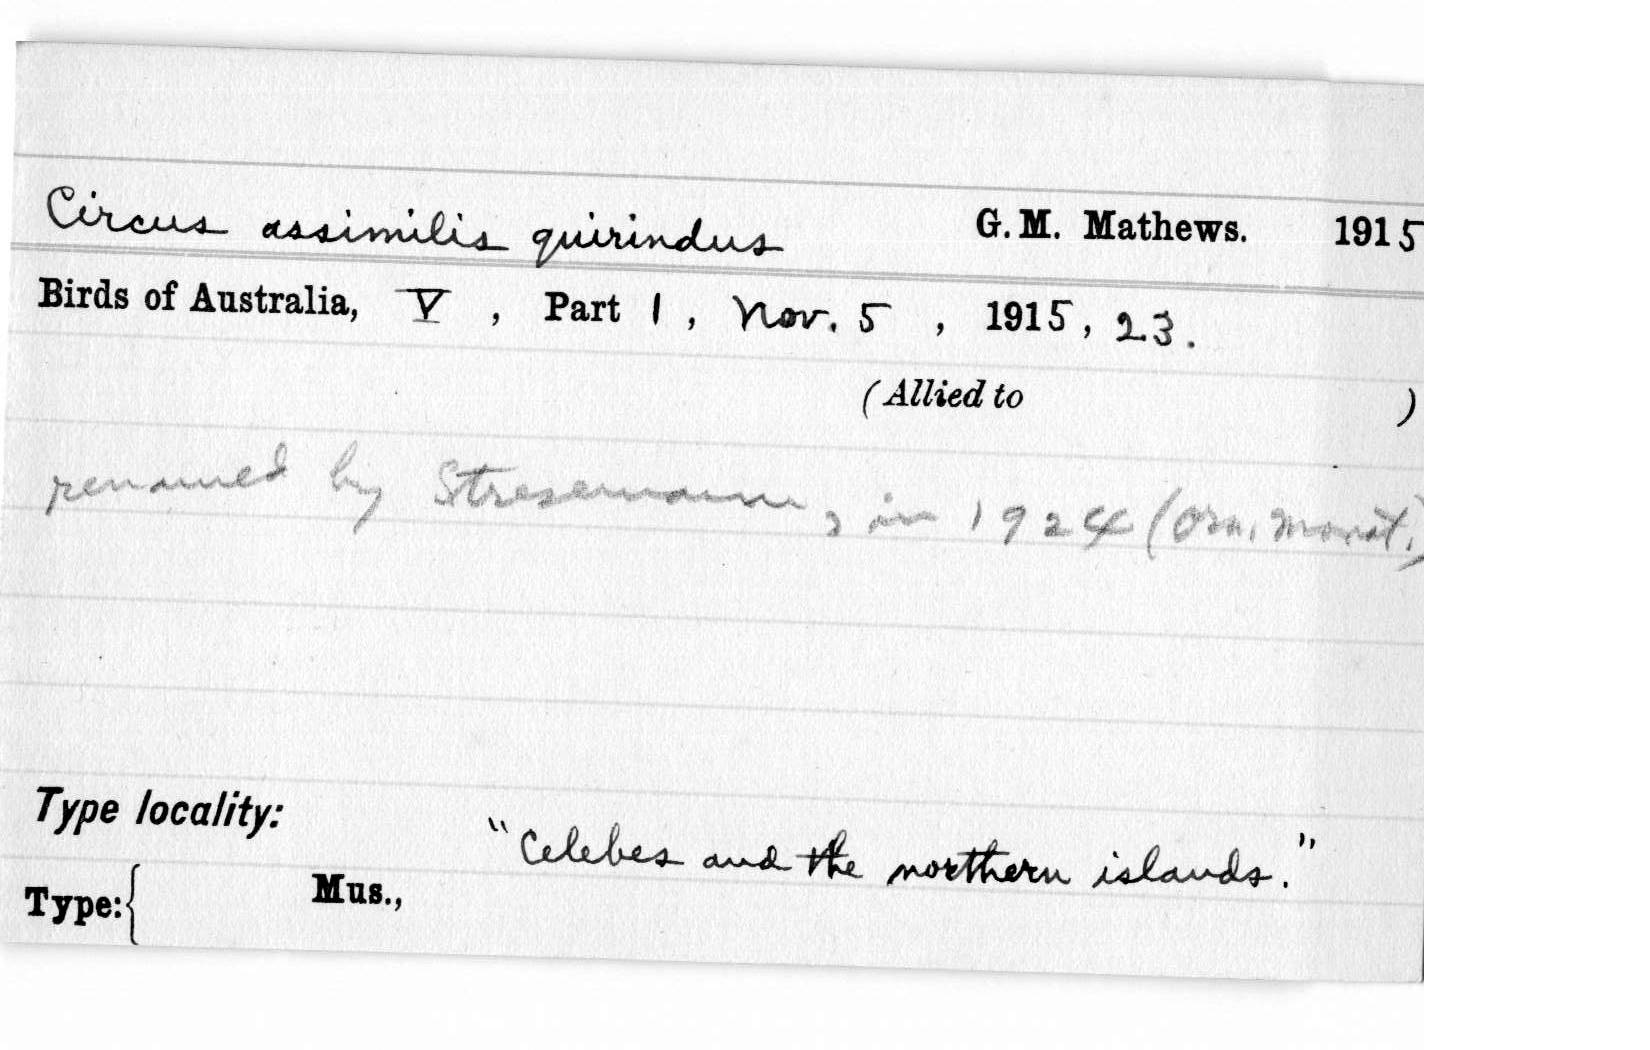 Circus assimilis quirindus G. M. Mathews. 1915
Birds of Australia, V, Part 1, Nov. 5, 1915, 23.
(Allied to )
renamed by Stresemann, in 1924 (Orn. Monat.)
Type locality:
"Celebes and the northern islands."
Type:{ Mus.,